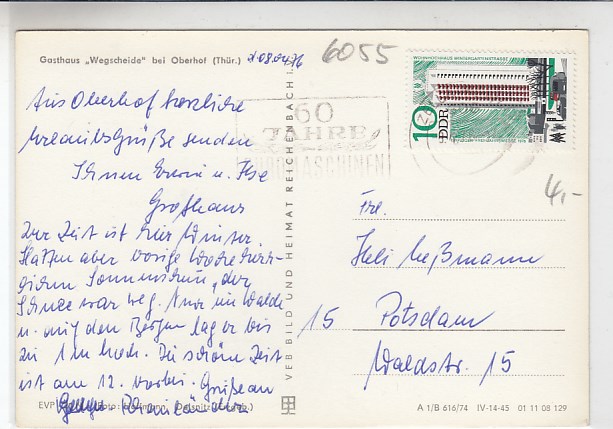 Gasthaus „Wegscheide" bei Oberhof (Thür.)
6055
WOHNHOCHHAUS WEINBERGSTRASSE
10
DDR
60
JAHRE
BÜROMASCHINEN
4,-
Aus Oberhof herzliche
Urlaubsgrüße senden
Ihnen Erwin u. Ilse
Großhans
Zur Zeit ist hier Winter.
Hatten aber vorige Woche
Sonnenschein, der
Schnee war weg. Nur im Walde
u. auf den Bergen lag er bis
zu 1m hoch. Die schöne Zeit
ist am 12. vorbei. Grüße an
VEB BILD UND HEIMAT REICHENBACH i.
Frl.
Heli Meßmann
15 Potsdam
Waldstr. 15
EVP
A 1/B 616/74 IV-14-45 01 11 08 129